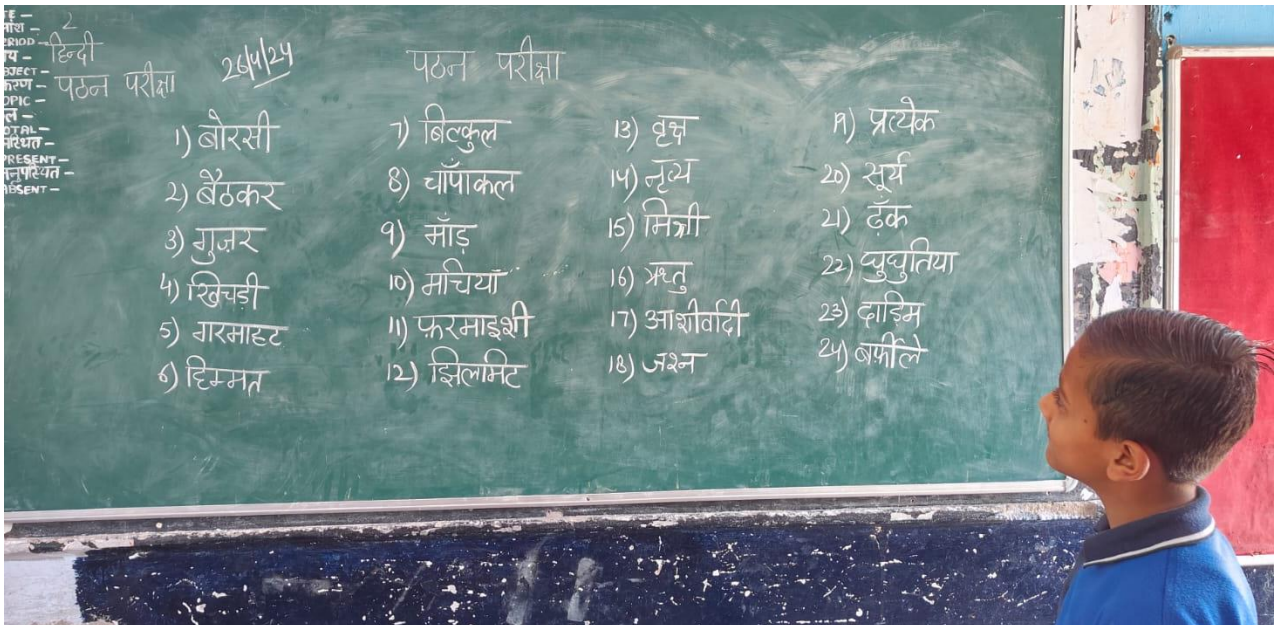 TE –
2
PERIOD –
हिन्दी
BJECT –
पठन परीक्षा
OPIC –
OTAL –
PRESENT –
ABSENT –
26/4/24
पठन परीक्षा
1) बोरसी
2) बैठकर
3) गुज़र
4) खिचड़ी
5) गरमाहट
6) हिम्मत
7) बिल्कुल
8) चाँपाकल
9) माँड़
10) मचियाँ
11) फ़रमाइशी
12) झिलमिट
13) वृक्ष
14) नृत्य
15) मिश्री
16) ऋतु
17) आशीर्वादी
18) जश्न
19) प्रत्येक
20) सूर्य
21) ढ़ँक
22) घुघुतिया
23) दाड़िम
24) बर्फ़ीले